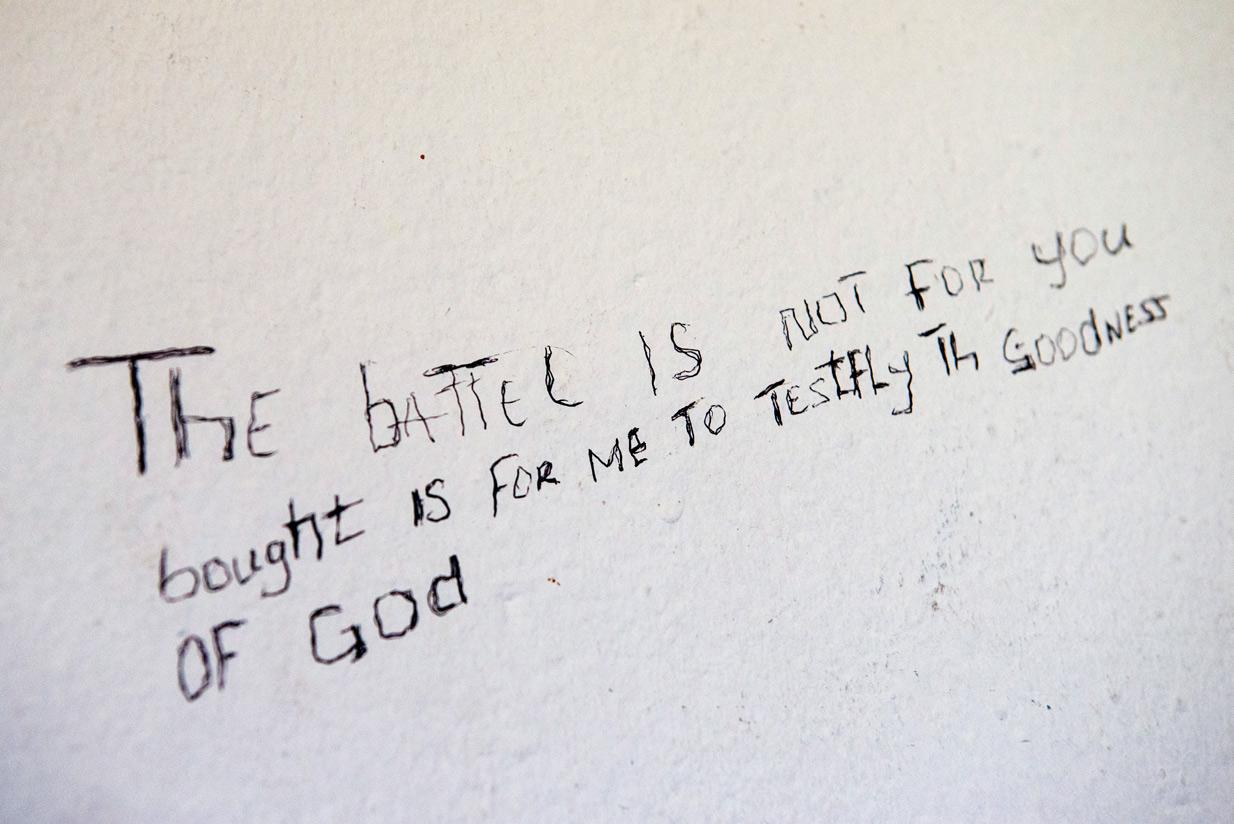 ThE bATTEL IS NOT FOR YOU
bought IS FOR ME TO TESTFLY Th GOODNESS
OF GOd